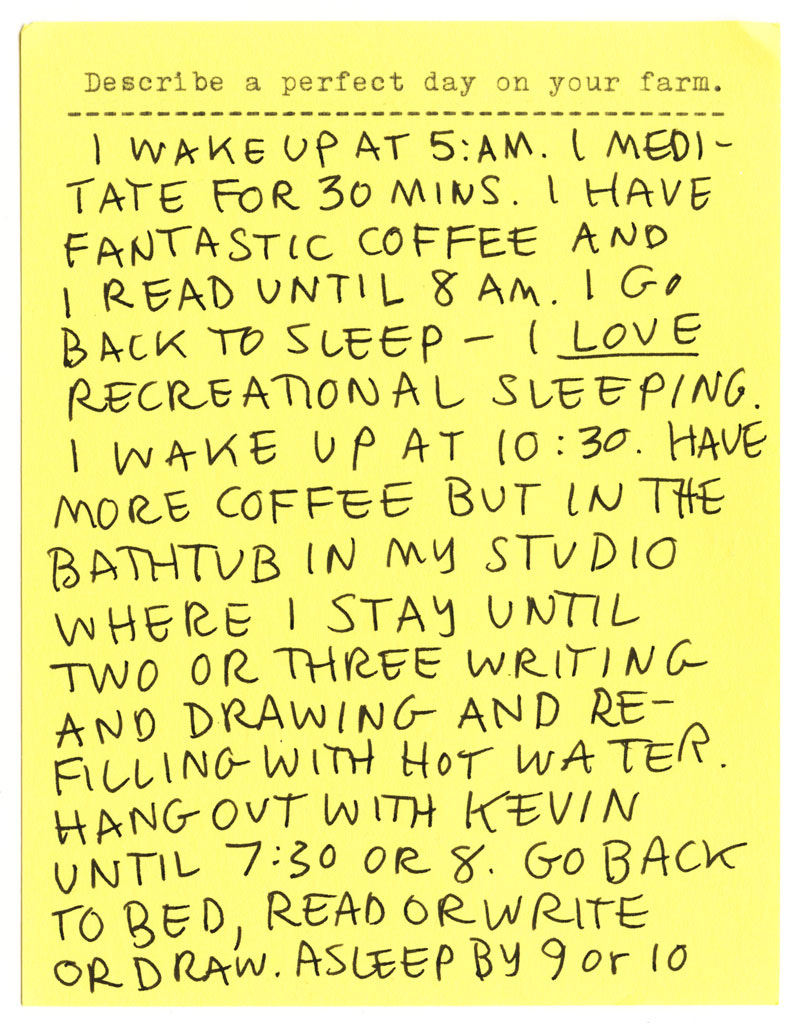 Describe a perfect day on your farm.
I WAKE UP AT 5:AM. I MEDI-
TATE FOR 30 MINS. I HAVE
FANTASTIC COFFEE AND
I READ UNTIL 8 AM. I GO
BACK TO SLEEP - I LOVE
RECREATIONAL SLEEPING.
I WAKE UP AT 10:30. HAVE
MORE COFFEE BUT IN THE
BATHTUB IN MY STUDIO
WHERE I STAY UNTIL
TWO OR THREE WRITING
AND DRAWING AND RE-
FILLING WITH HOT WATER.
HANG OUT WITH KEVIN
UNTIL 7:30 OR 8. GO BACK
TO BED, READ OR WRITE
OR DRAW. ASLEEP BY 9 or 10